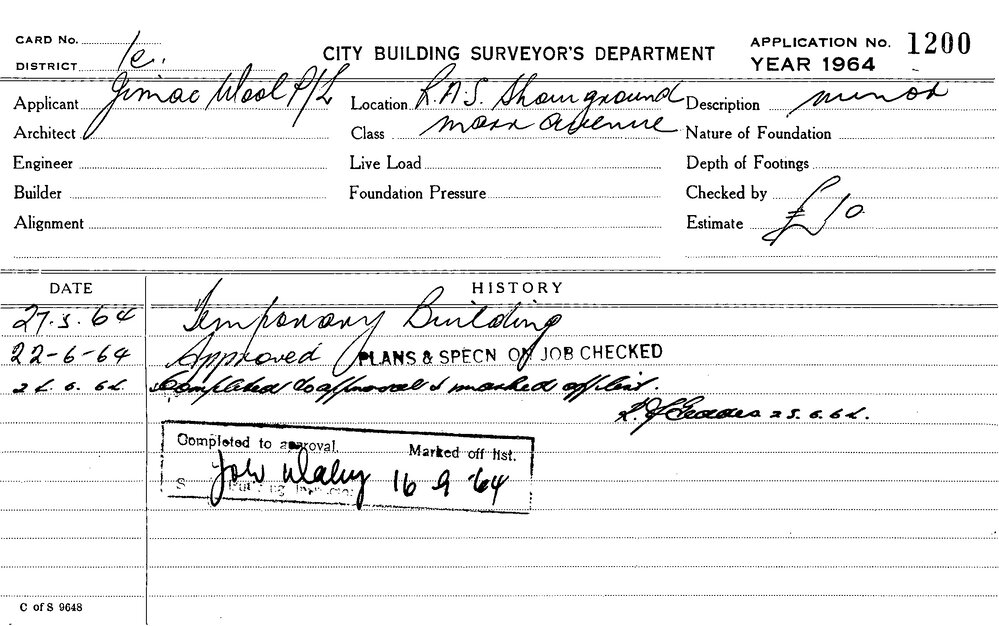 CARD No.
DISTRICT 1e.
CITY BUILDING SURVEYOR'S DEPARTMENT
APPLICATION No. 1200
YEAR 1964
Applicant Jimac Wool P/L
Location R.A.S. Showground
Description minor
Architect
Class moore avenue
Nature of Foundation
Engineer
Live Load
Depth of Footings
Builder
Foundation Pressure
Checked by
Alignment
Estimate £10
DATE
HISTORY
27.5.64 Temporary Building
22-6-64 Approved PLANS & SPECN ON JOB CHECKED
24.6.64. Completed to approval & marked off list.
25.6.64.
Completed to approval. Marked off list.
16 9 '64
Building Inspector
C of S 9648